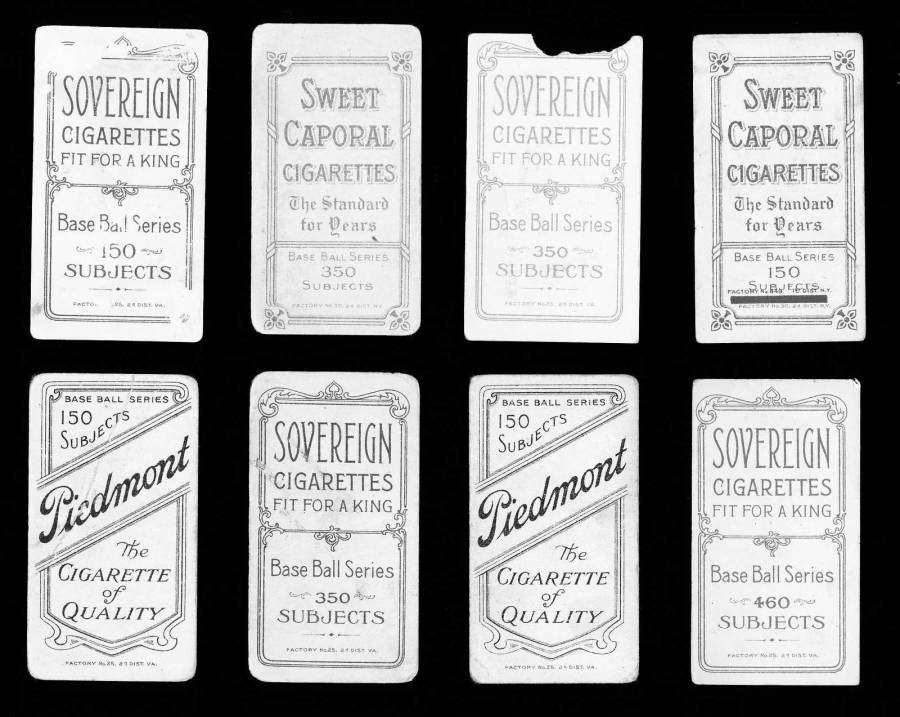 SOVEREIGN
CIGARETTES
FIT FOR A KING
Base Ball Series
150
SUBJECTS
FACTO. .25, 2d DIST. VA.
SWEET
CAPORAL
CIGARETTES
The Standard
for Years
BASE BALL SERIES
350
SUBJECTS
FACTORY No.30, 2d DIST. N.Y.
SOVEREIGN
CIGARETTES
FIT FOR A KING
Base Ball Series
350
SUBJECTS
FACTORY No.25, 2d DIST. VA.
SWEET
CAPORAL
CIGARETTES
The Standard
for Years
BASE BALL SERIES
150
SUBJECTS
FACTORY No 649 1st DIST. N.Y.
FACTORY No.30, 2d DIST. N.Y.
BASE BALL SERIES
150
SUBJECTS
Piedmont
The
CIGARETTE
of
QUALITY
FACTORY No.25, 2d DIST. VA.
SOVEREIGN
CIGARETTES
FIT FOR A KING
Base Ball Series
350
SUBJECTS
FACTORY No.25, 2d DIST. VA.
BASE BALL SERIES
150
SUBJECTS
Piedmont
The
CIGARETTE
of
QUALITY
FACTORY No.25, 2d DIST. VA.
SOVEREIGN
CIGARETTES
FIT FOR A KING
Base Ball Series
460
SUBJECTS
FACTORY No.25, 2d DIST. VA.